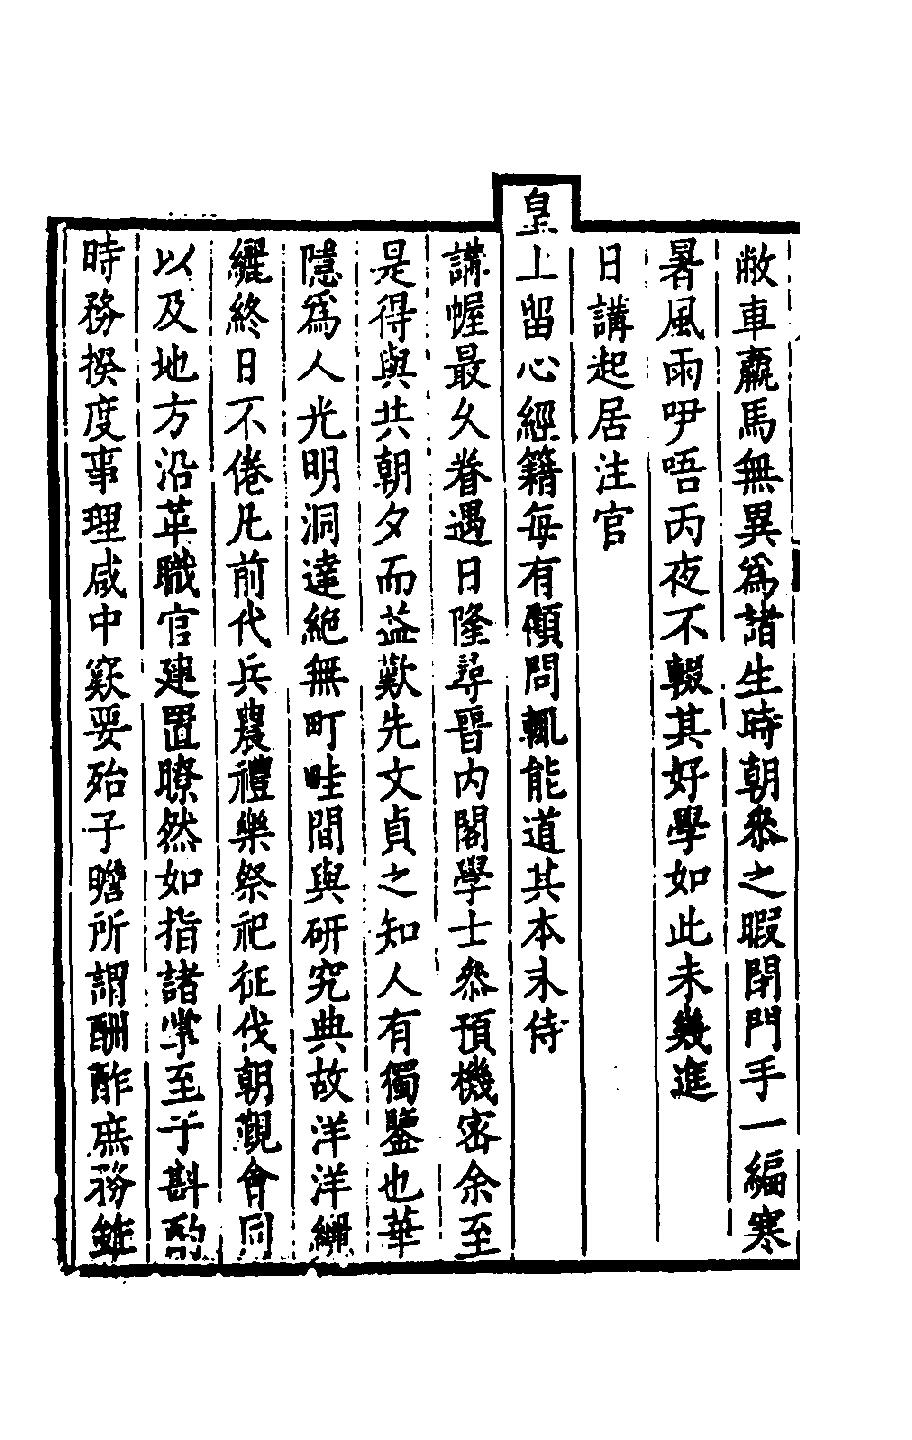 敝車羸馬無異爲諸生時朝叅之暇閉門手一編寒
暑風雨咿唔丙夜不輟其好學如此未幾進
日講起居注官
皇上留心經籍每有顧問輒能道其本末侍
講幄最久眷遇日隆尋晉內閣學士叅預機密余至
是得與共朝夕而益歎先文貞之知人有獨鑒也華
隱爲人光明洞達絶無町畦間與研究典故洋洋纚
纚終日不倦凡前代兵農禮樂祭祀征伐朝覲會同
以及地方沿革職官建置瞭然如指諸掌至于斟酌
時務揆度事理咸中窾要殆子瞻所謂酬酢庶務雖